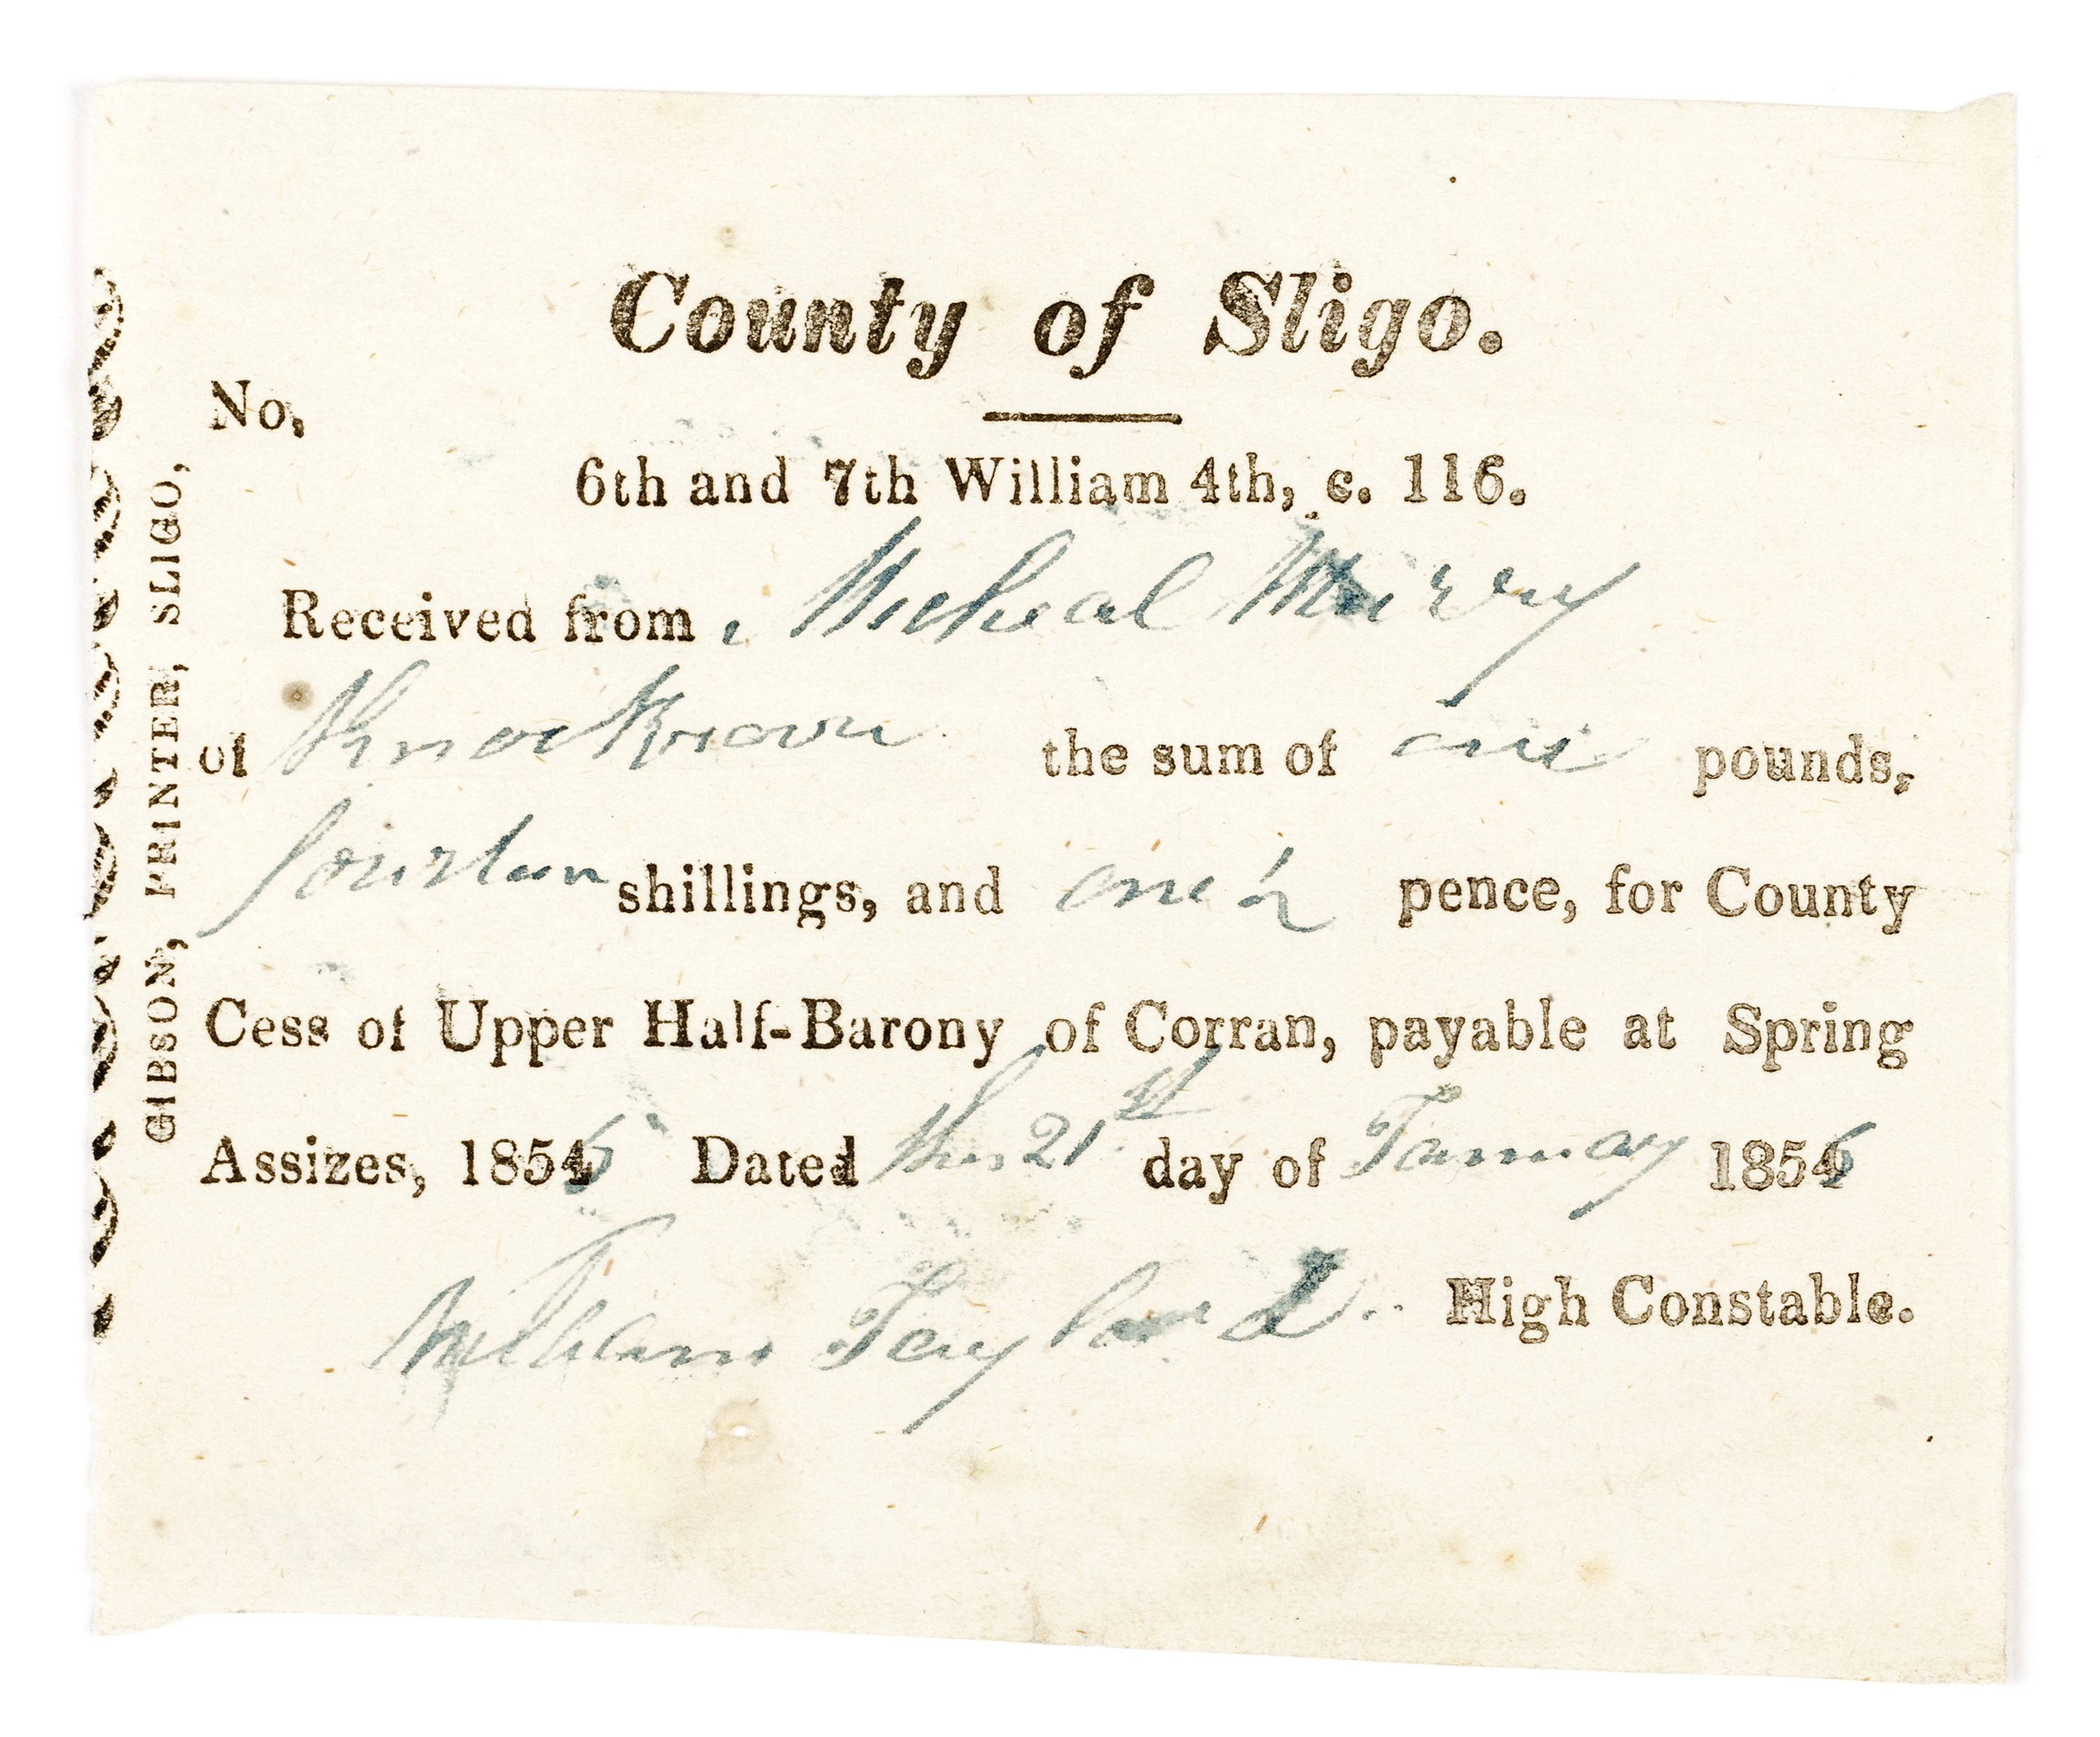 County of Sligo.
No,
6th and 7th William 4th, c. 116.
Received from Micheal Murry
of the sum of one pounds,
fourteen shillings, and one ½ pence, for County
Cess of Upper Half-Barony of Corran, payable at Spring
Assizes, 1855 Dated this 21st day of January 1855
William Taylor High Constable.
GIBSON, PRINTER, SLIGO,